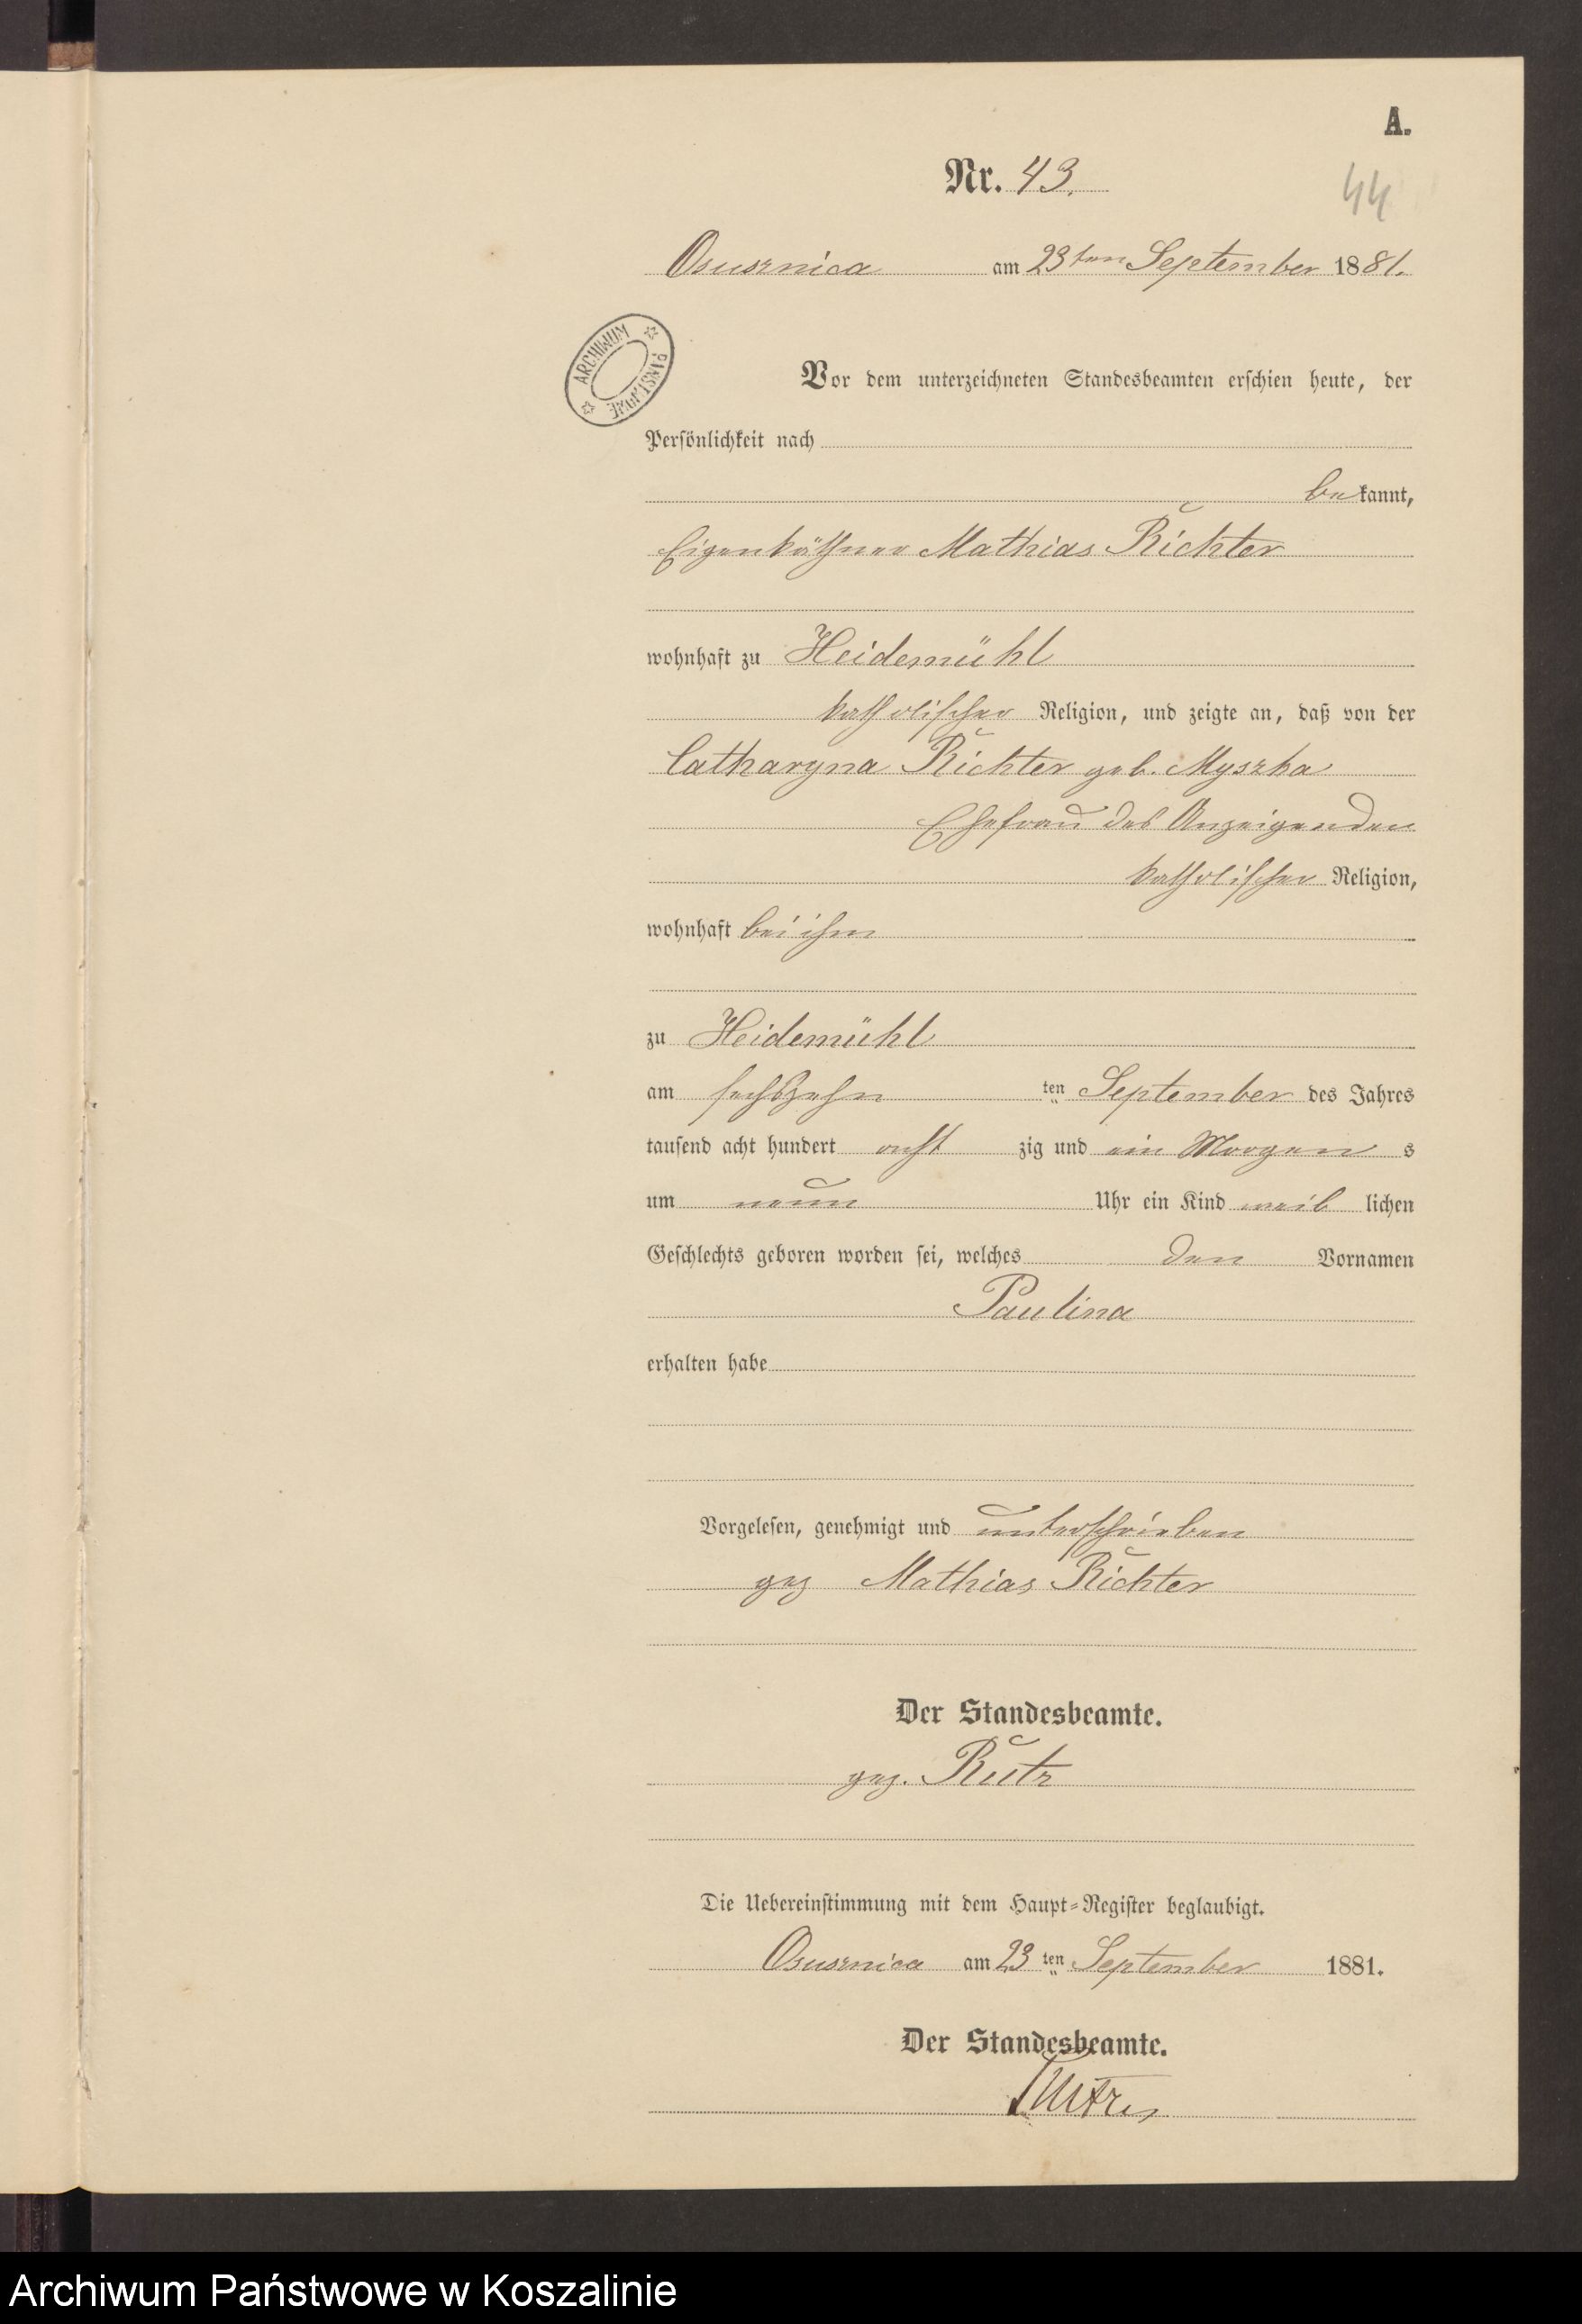 A.
Nr. 43.
44
Osusznica am 23ten September 1881.
ARCHIWUM PAŃSTWOWE
Vor dem unterzeichneten Standesbeamten erschien heute, der
Persönlichkeit nach
bekannt,
Eigenkäthner Mathias Richter
wohnhaft zu Heidemühl
katholischer Religion, und zeigte an, daß von der
Catharyna Richter geb. Myszka
Ehefrau des Anzeigenden
katholischer Religion,
wohnhaft bei ihm
zu Heidemühl
am sechszehn ten September des Jahres
tausend acht hundert acht zig und ein Morgen s
um neun Uhr ein Kind weib lichen
Geschlechts geboren worden sei, welches den Vornamen
Paulina
erhalten habe
Vorgelesen, genehmigt und unterschrieben
gez Mathias Richter
Der Standesbeamte.
gez. Rutz
Die Uebereinstimmung mit dem Haupt-Register beglaubigt.
Osusznica am 23 ten September 1881.
Der Standesbeamte.
Archiwum Państwowe w Koszalinie